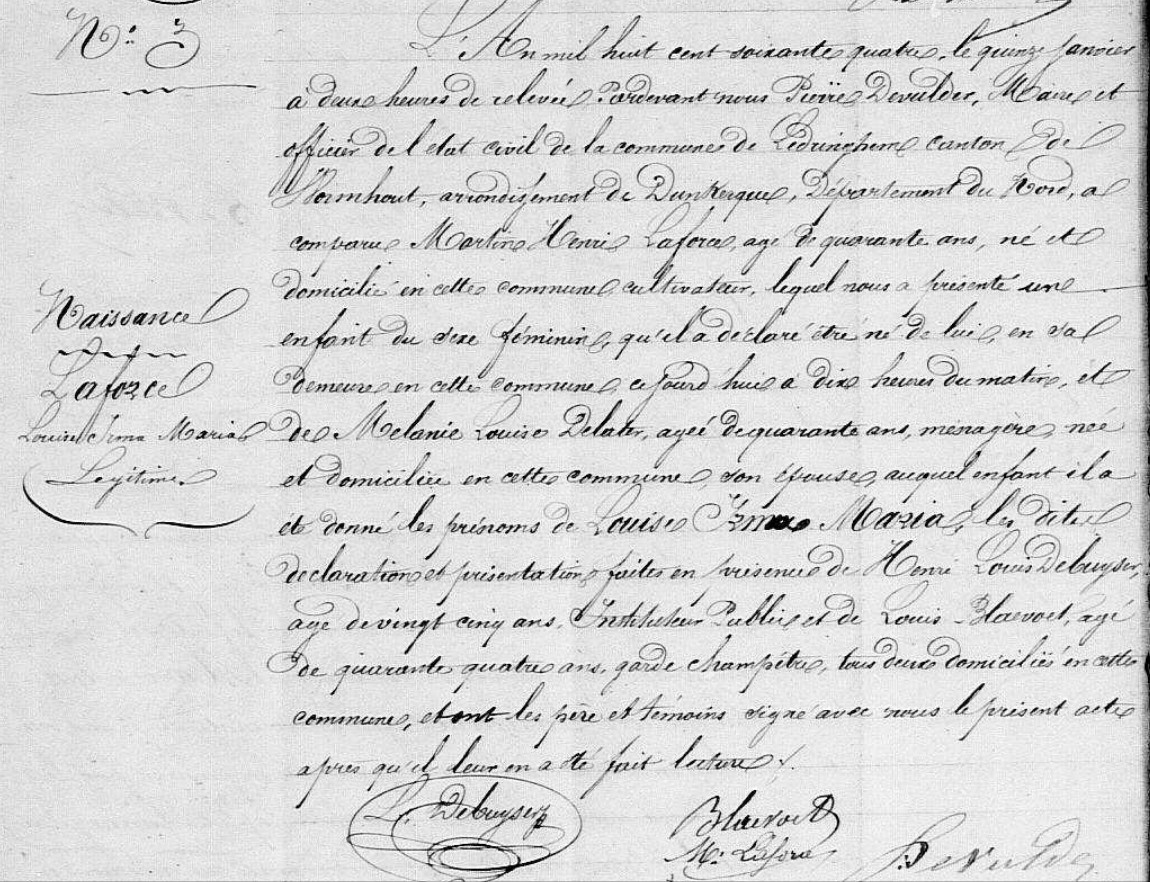 N.° 3
L'An mil huit cent soixante quatre, le quinze janvier
à deux heures de relevée, Pardevant nous Pierre Devulder, Maire et
officier de l'etat civil de la commune de Ledringhem canton de
Wormhout, arrondissement de Dunkerque, Département du Nord, a
comparu Martin Henri Laforce, agé de quarante ans, né et
domicilié en cette commune, cultivateur, lequel nous a présenté une
enfant du sexe féminin, qu'il a déclaré être né de lui, en sa
demeure en cette commune, ce jourd'hui a dix heures du matin, et
de Melanie Louise Delater, ageé de quarante ans, ménagère, née
et domiciliée en cette commune, son épouse, auquel enfant il a
été donné les prénoms de Louise Irma Maria, les dites
declaration et présentation faites en présence de Henri Louis Debuyser,
agé de vingt cinq ans, Instituteur Public et de Louis Blaevoet, agé
de quarante quatre ans, garde champêtre, tous deux domiciliés en cette
commune, et ont les père et témoins signé avec nous le présent acte
apres qu'il leur en a été fait lecture /.
Naissance
Laforce
Louise Irma Maria
Légitime
L. Debuyser
Blaevoet
M. Laforce
P. Devulder